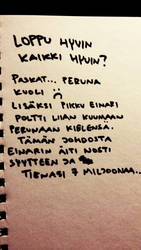 LOPPU HYVIN
KAIKKI HYVIN?
PASKAT... PERUNA
KUOLI :(
LISÄKSI PIKKU EINARI
POLTTI LIIAN KUUMAAN
PERUNAAN KIELENSÄ.
TÄMÄN JOHDOSTA
EINARIN ÄITI NOSTI
SYYTTEEN JA
TIENASI 7 MILJOONAA...